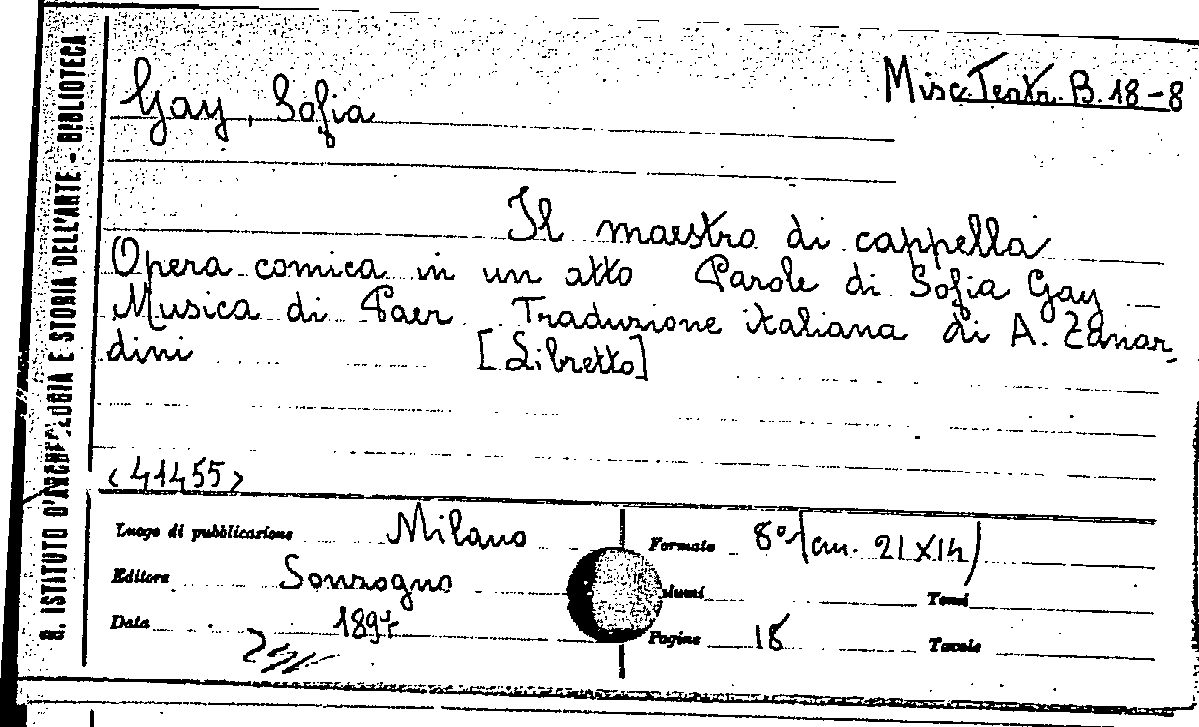 Misc. Teatr. B. 18-8
Gay, Sofia
Il maestro di cappella
Opera comica in un atto Parole di Sofia Gay
Musica di Paer Traduzione italiana di A. Zanar-
dini [Libretto]
<41455>
Luogo di pubblicazione Milano Formato 8° (cm. 21X14)
Editore Sonzogno Volumi Tomi
Data 1897 Pagine 18 Tavole
R. ISTITUTO D'ARCHEOLOGIA E STORIA DELL'ARTE - BIBLIOTECA